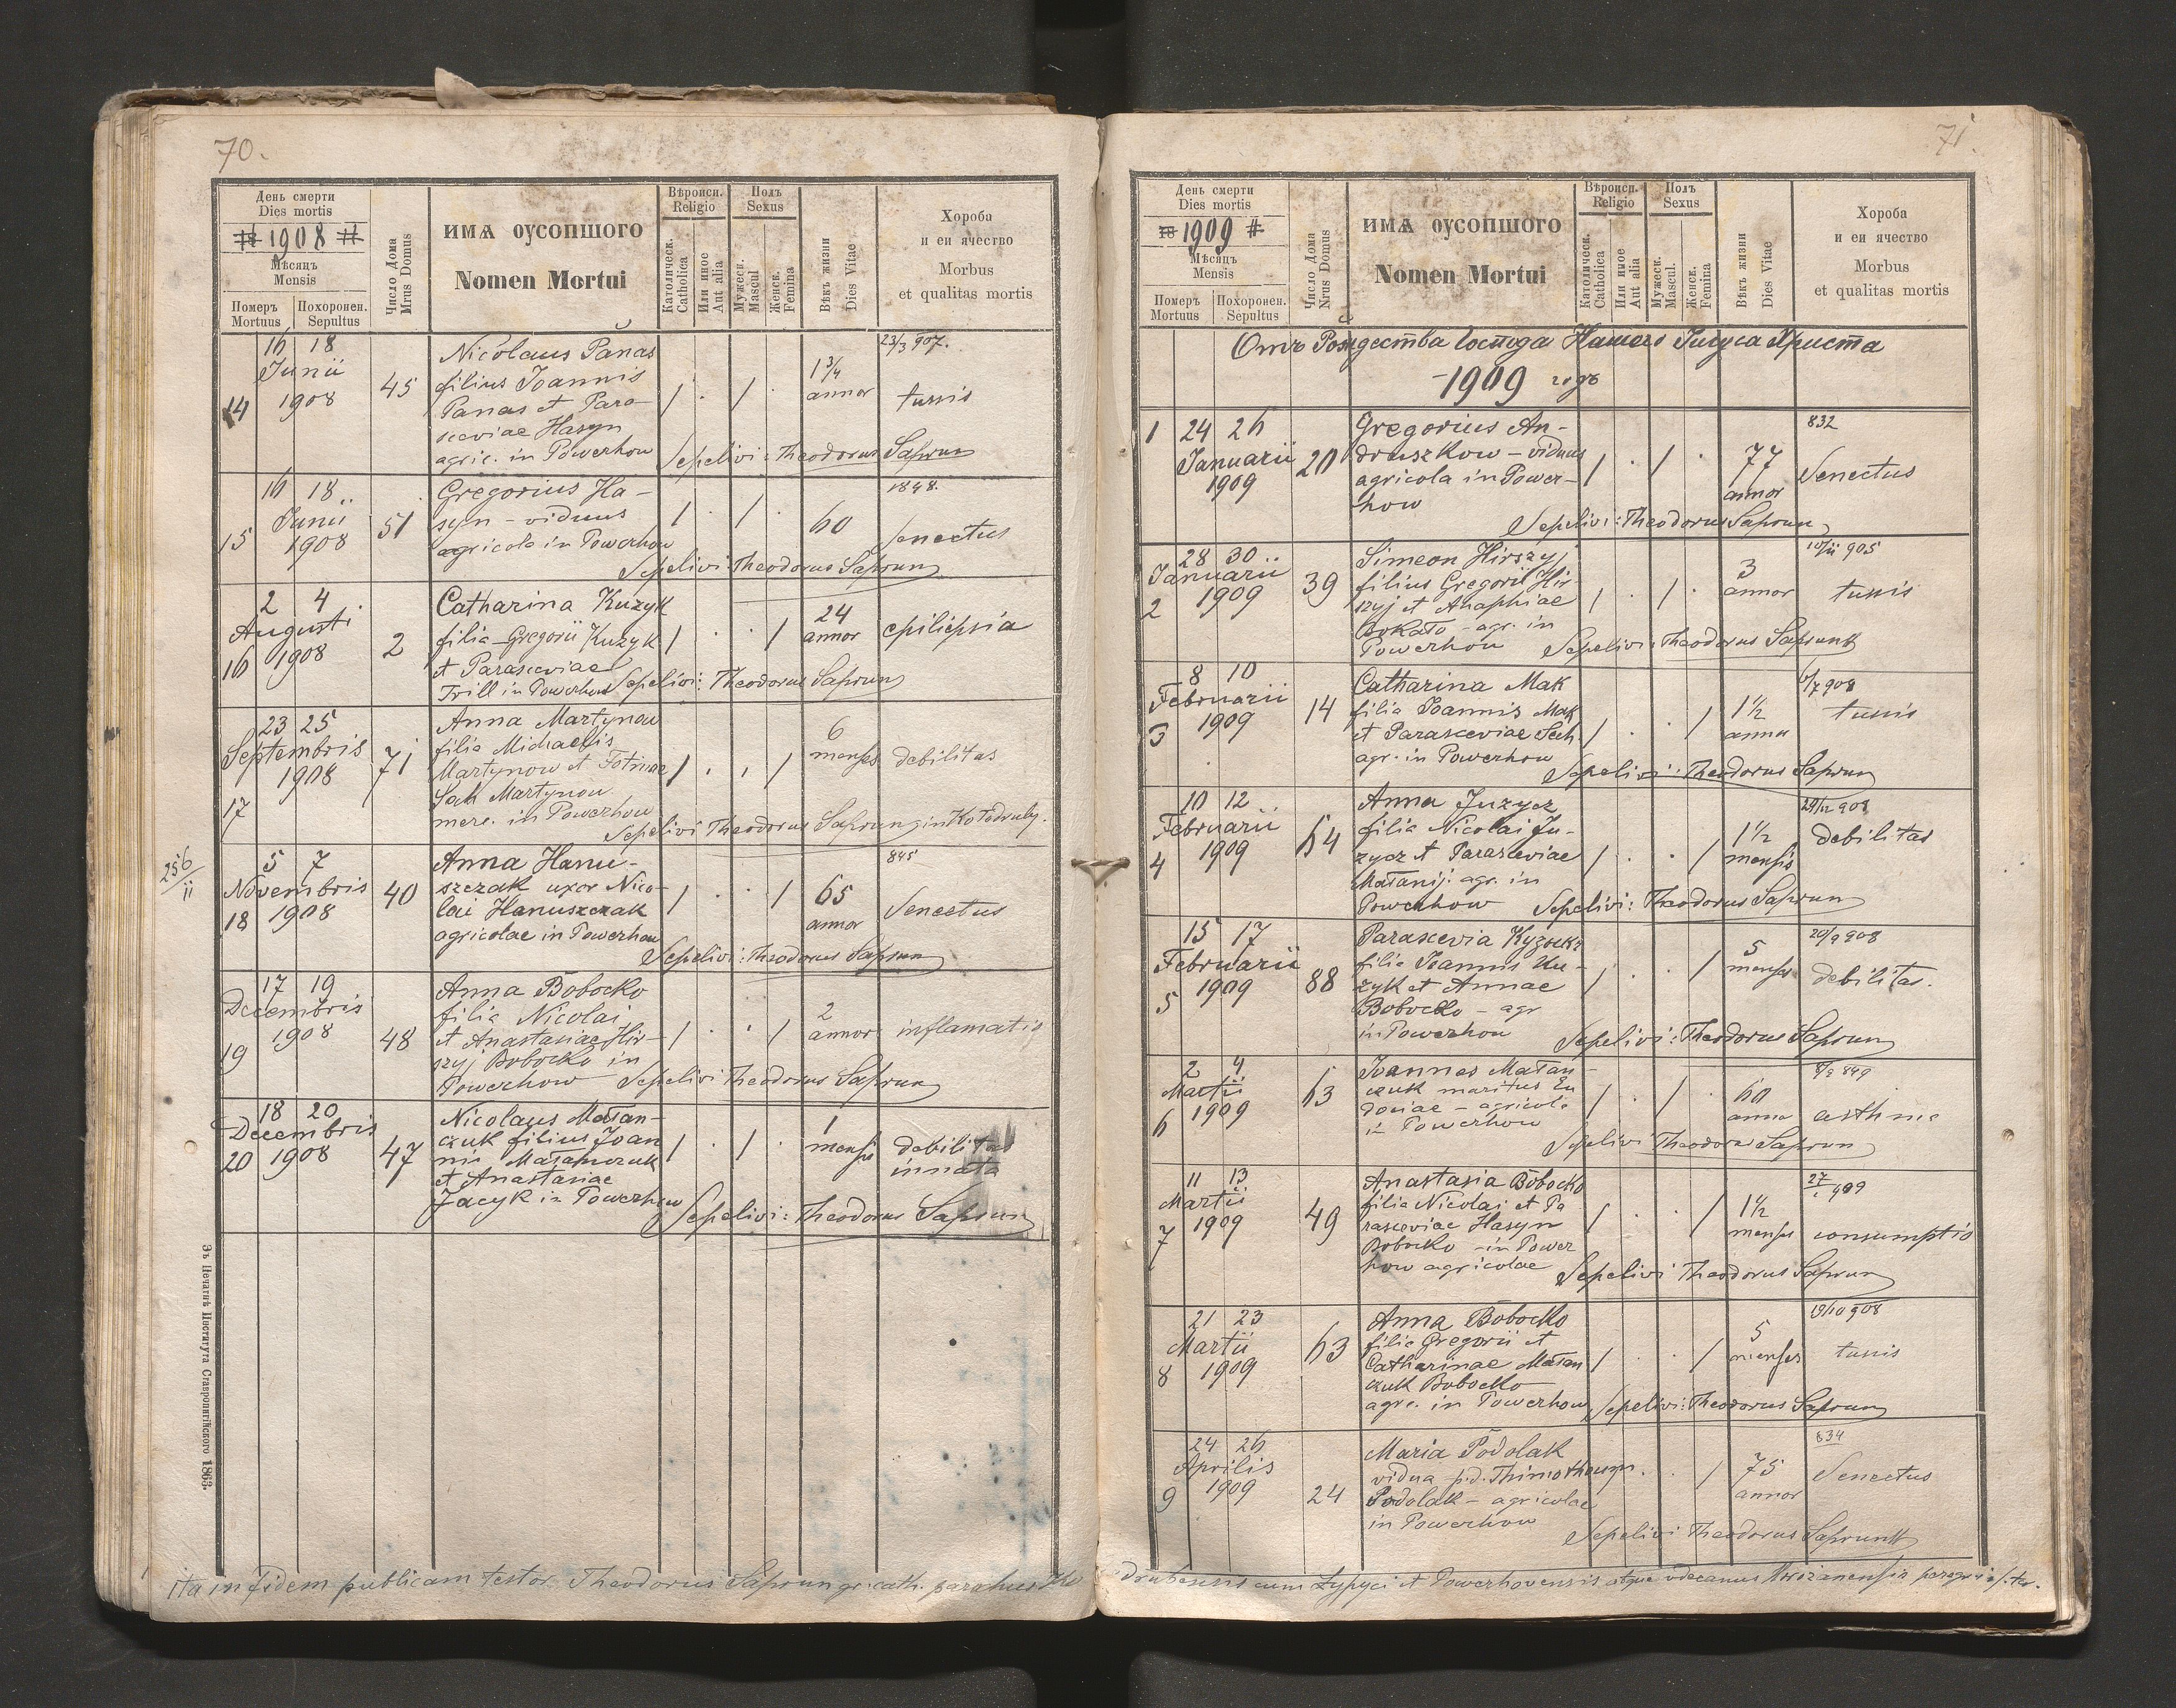 70.
День смерти
Dies mortis
1908
Мѣсяцъ
Mensis
Номеръ
Mortuus
Похоронен.
Sepultus
Число Дома
Mrus Domus
ИМѦ ОУСОПШОГО
Nomen Mortui
Вѣроисп.
Religio
Католическ.
Catholica
Или иное
Aut alia
Полъ
Sexus
Мужеск.
Mascul
Женск.
Femina
Вѣкъ жизни
Dies Vitae
Хороба
и еи ячество
Morbus
et qualitas mortis
14
16 18
Junii
1908
45
Nicolaus Panas
filius Joannis
Panas et Para-
sceviae Hasyn
agric. in Powerhow
1 3/4
annor
23/3 907.
tussis
Sepelivi: Theodorus Saprun
15
16 18
Junii
1908
51
Gregorius Ha-
syn - viduus
agricola in Powerhow
60
1848.
senectus
Sepelivi Theodorus Saprun
16
2 4
Augusti
1908
2
Catharina Kuzyk
filia Gregorii Kuzyk
et Parasceviae
Trill in Powerhow
24
annor
epilepsia
Sepelivi: Theodorus Saprun
17
23 25
Septembris
1908
71
Anna Martynow
filia Michaelis
Martynow et
Sak Martynow
merc. in Powerhow
6
menses
debilitas
Sepelivi Theodorus Saprun
256/II
18
5 7
Novembris
1908
40
Anna Hanu-
szczak uxor Nico-
lai Hanuszczak
agricolae in Powerhow
65
annor
845
Senectus
Sepelivi: Theodorus Saprun
19
17 19
Decembris
1908
48
Anna Bobocko
filia Nicolai
et Anastasiae Hir-
szyj Bobocko in
Powerhow
2
annor
inflamatio
Sepelivi Theodorus Saprun
20
18 20
Decembris
1908
47
Nicolaus Małan-
czuk filius Joan
nis Małanczuk
et Anastasiae
Jacyk in Powerhow
1
mensis
debilitas
innata
Sepelivi: Theodorus Saprun
Зъ Печатнѣ Института Ставропигійского 1863.
ita in fidem publicam testor Theodorus Saprun gr. cath. parohus Ko
71.
День смерти
Dies mortis
1909
Мѣсяцъ
Mensis
Номеръ
Mortuus
Похоронен.
Sepultus
Число Дома
Nrus Domus
ИМѦ ОУСОПШОГО
Nomen Mortui
Вѣроисп.
Religio
Католическ.
Catholica
Или иное
Aut alia
Полъ
Sexus
Мужеск.
Mascul.
Женск.
Femina
Вѣкъ жизни
Dies Vitae
Хороба
и еи ячество
Morbus
et qualitas mortis
Отъ Рождества Господа Нашего Іисуса Христа
1909 годъ
1
24 26
Januarii
1909
20
Gregorius An-
druszkow - viduus
agricola in Power-
how
77
annor
832
Senectus
Sepelivi: Theodorus Saprun
2
28 30
Januarii
1909
39
Simeon Hirszyj
filius Gregorii Hir
szyj et Anaphiae
Bokało - agr. in
Powerhow
3
annor
10/II 905
tussis
Sepelivi: Theodorus Saprun
3
8 10
Februarii
1909
14
Catharina Mak
filia Joannis Mak
et Parasceviae Sech
agr. in Powerhow
1 1/2
annor
6/7 908
tussis
Sepelivi: Theodorus Saprun
4
10 12
Februarii
1909
64
Anna Juzycz
filia Nicolai Ju-
zycz et Parasceviae
Małanij. agr. in
Powerhow
1 1/2
mensis
24/12 908
debilitas
Sepelivi: Theodorus Saprun
5
15 17
Februarii
1909
88
Parascevia
filia Joannis Ku-
zyk et Annae
Bobocko - agr
in Powerhow
5
menses
20/9 908
debilitas.
Sepelivi: Theodorus Saprun
6
2 4
Martii
1909
63
Joannes Małan-
czuk maritus Eu
dociae - agricola
in Powerhow
60
annor
8/2 849
asthma
Sepelivi Theodorus Saprun
7
11 13
Martii
1909
49
Anastasia Bobocko
filia Nicolai et Pa
rasceviae Hasyn
Bobocko - in Power
how agricolae
1 1/2
menses
27/1 909
consumptio
Sepelivi Theodorus Saprun
8
21 23
Martii
1909
63
Anna Bobocko
filia Gregorii et
Catharinae Małan
czuk Bobocko
agr. in Powerhow
5
menses
19/10 908
tussis
Sepelivi: Theodorus Saprun
9
24 26
Aprilis
1909
24
Maria Podolak
vidua p.d. Thimotheum
Podolak - agricolae
in Powerhow
75
annor
834
Senectus
Sepelivi Theodorus Saprun
drubensis cum Łypyci et Powerhovensis atque vdecanus